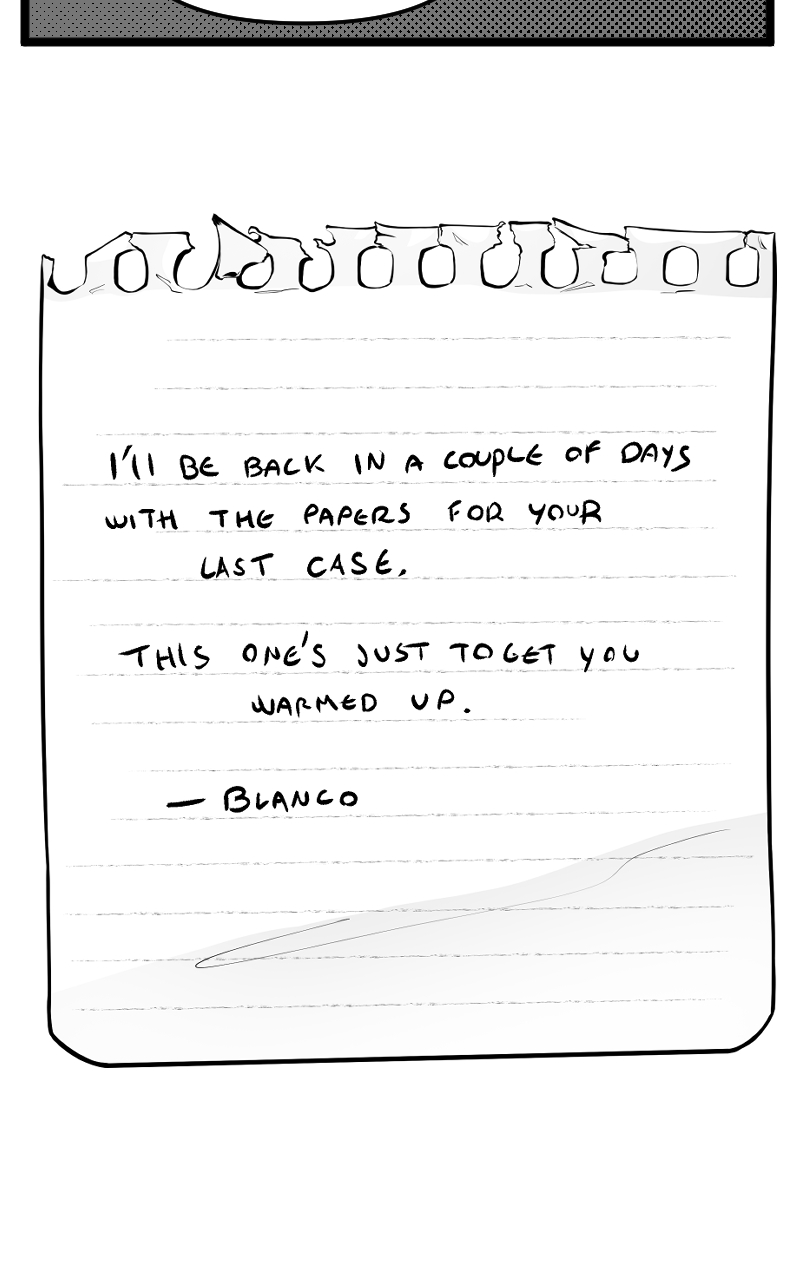 I'll BE BACK IN A COUPLE OF DAYS
WITH THE PAPERS FOR YOUR
LAST CASE.
THIS ONE'S JUST TO GET YOU
WARMED UP.
— BLANCO